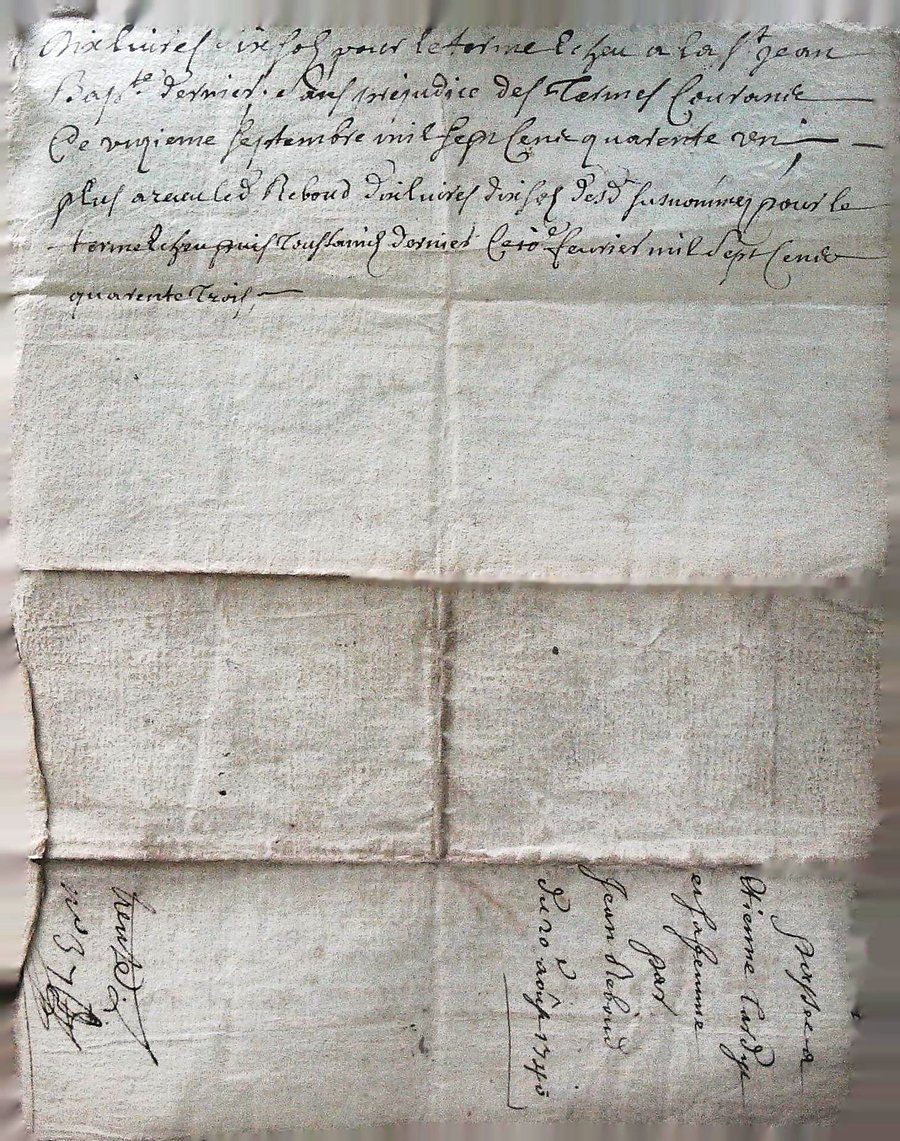 dix livres dix sols pour le terme Echeu a la St jean
Bapte dernier sans prejudice des Termes Courants
Ce vingtieme septembre mil sept Cent quarente un
plus a reçeu led Reboud dix livres dix sols desd surnommez pour le
terme Echeu puis Toussainct dernier Ce 10e feuvrier mil sept Cent
quarente Trois
a
Etienne tardy
et sa femme
par
Jean Reboud
du 20 aoust 1740